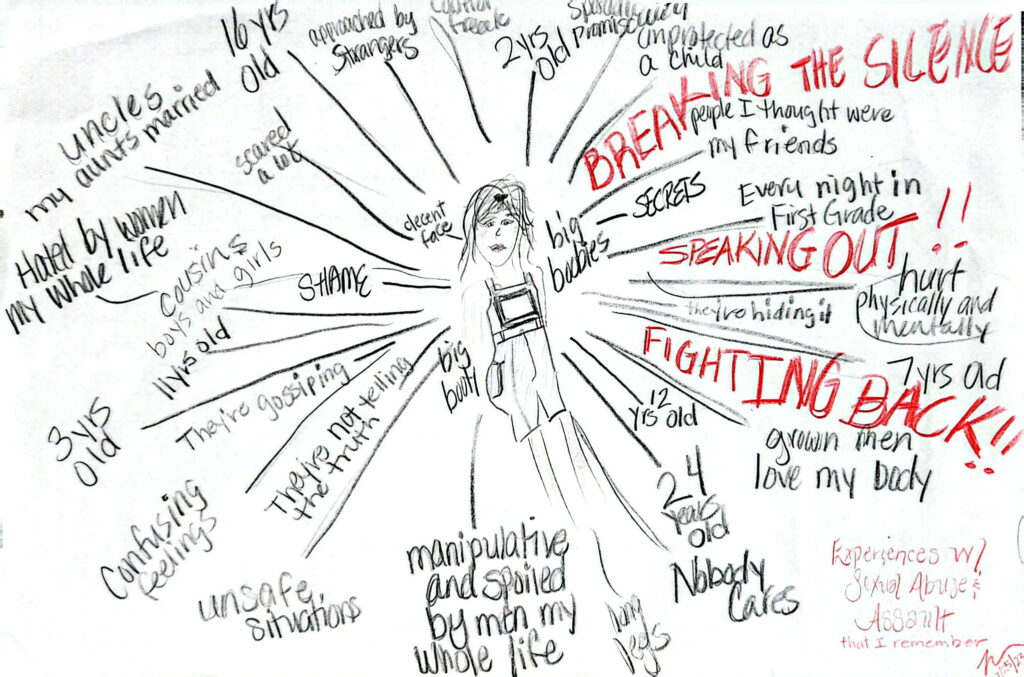 16 yrs
old
approached by
strangers
control
freak
2 yrs
old
unprotected as
a child
BREAKING THE SILENCE
people I thought were
my friends
uncles
my aunts married
scared
a lot
SECRETS
Every night in
First Grade
decent
face
big
boobies
SPEAKING OUT!!
Hated by women
my whole life
cousins
boys and girls
11 yrs old
SHAME
hurt
physically and
mentally
they're hiding it
FIGHTING BACK!!
7 yrs old
3 yrs
old
They're gossiping
They're not telling
the truth
big
booty
12
yrs old
grown men
love my body
24
years
old
Confusing
feelings
unsafe
situations
manipulative
and spoiled
by men my
whole life
long
legs
Nobody
Cares
Experiences w/
Sexual Abuse &
Assault
that I remember